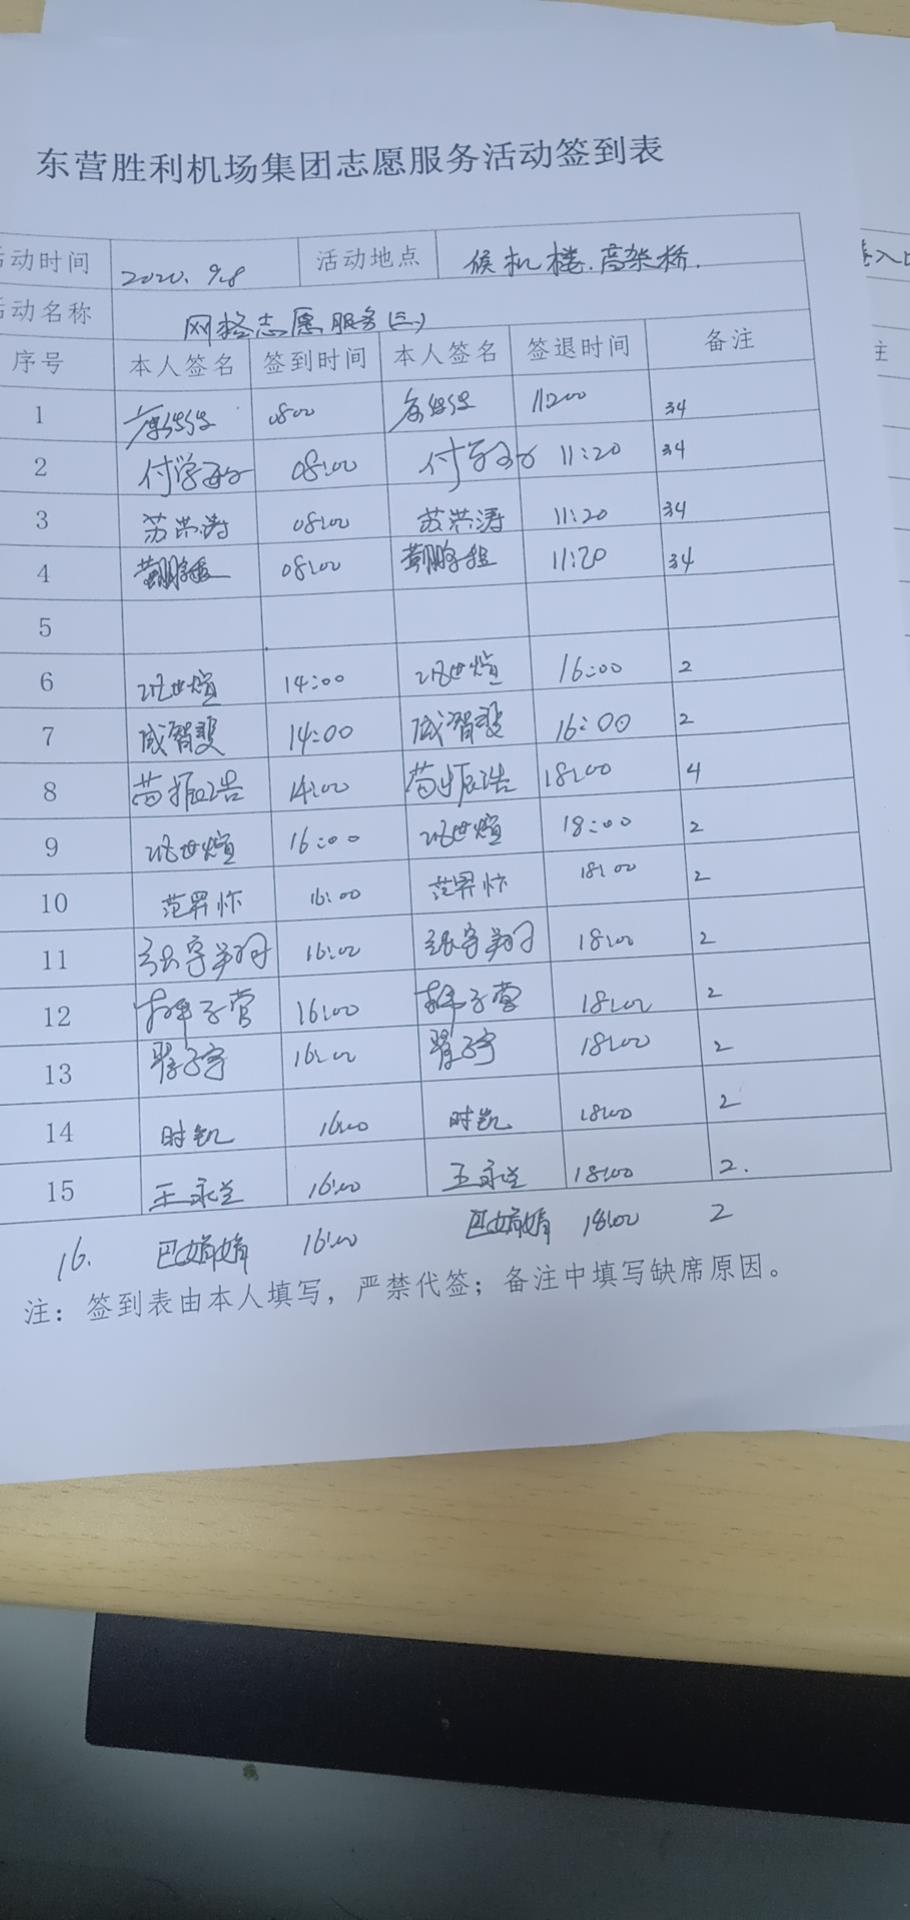 东营胜利机场集团志愿服务活动签到表
活动时间 2020.9.8 活动地点 候机楼.高架桥.
活动名称 网格志愿服务(三)
序号 本人签名 签到时间 本人签名 签退时间 备注
1 0800 11200 34
2 付学 08:00 付学 11:20 34
3 苏洪涛 08:00 苏洪涛 11:20 34
4 08:00 11:20 34
5
6 世煊 14:00 世煊 16:00 2
7 戚智斐 14:00 戚智斐 16:00 2
8 苗振浩 14:00 苗振浩 18:00 4
9 世煊 16:00 世煊 18:00 2
10 范昇忭 16:00 范昇忭 18:00 2
11 张宇翔 16:00 张宇翔 18:00 2
12 子营 16:00 子营 18:00 2
13 子宇 16:00 子宇 18:00 2
14 时凯 16:00 时凯 18:00 2
15 王永兰 16:00 王永兰 18:00 2.
16. 巴娟娟 16:00 巴娟娟 18:00 2
注：签到表由本人填写，严禁代签；备注中填写缺席原因。